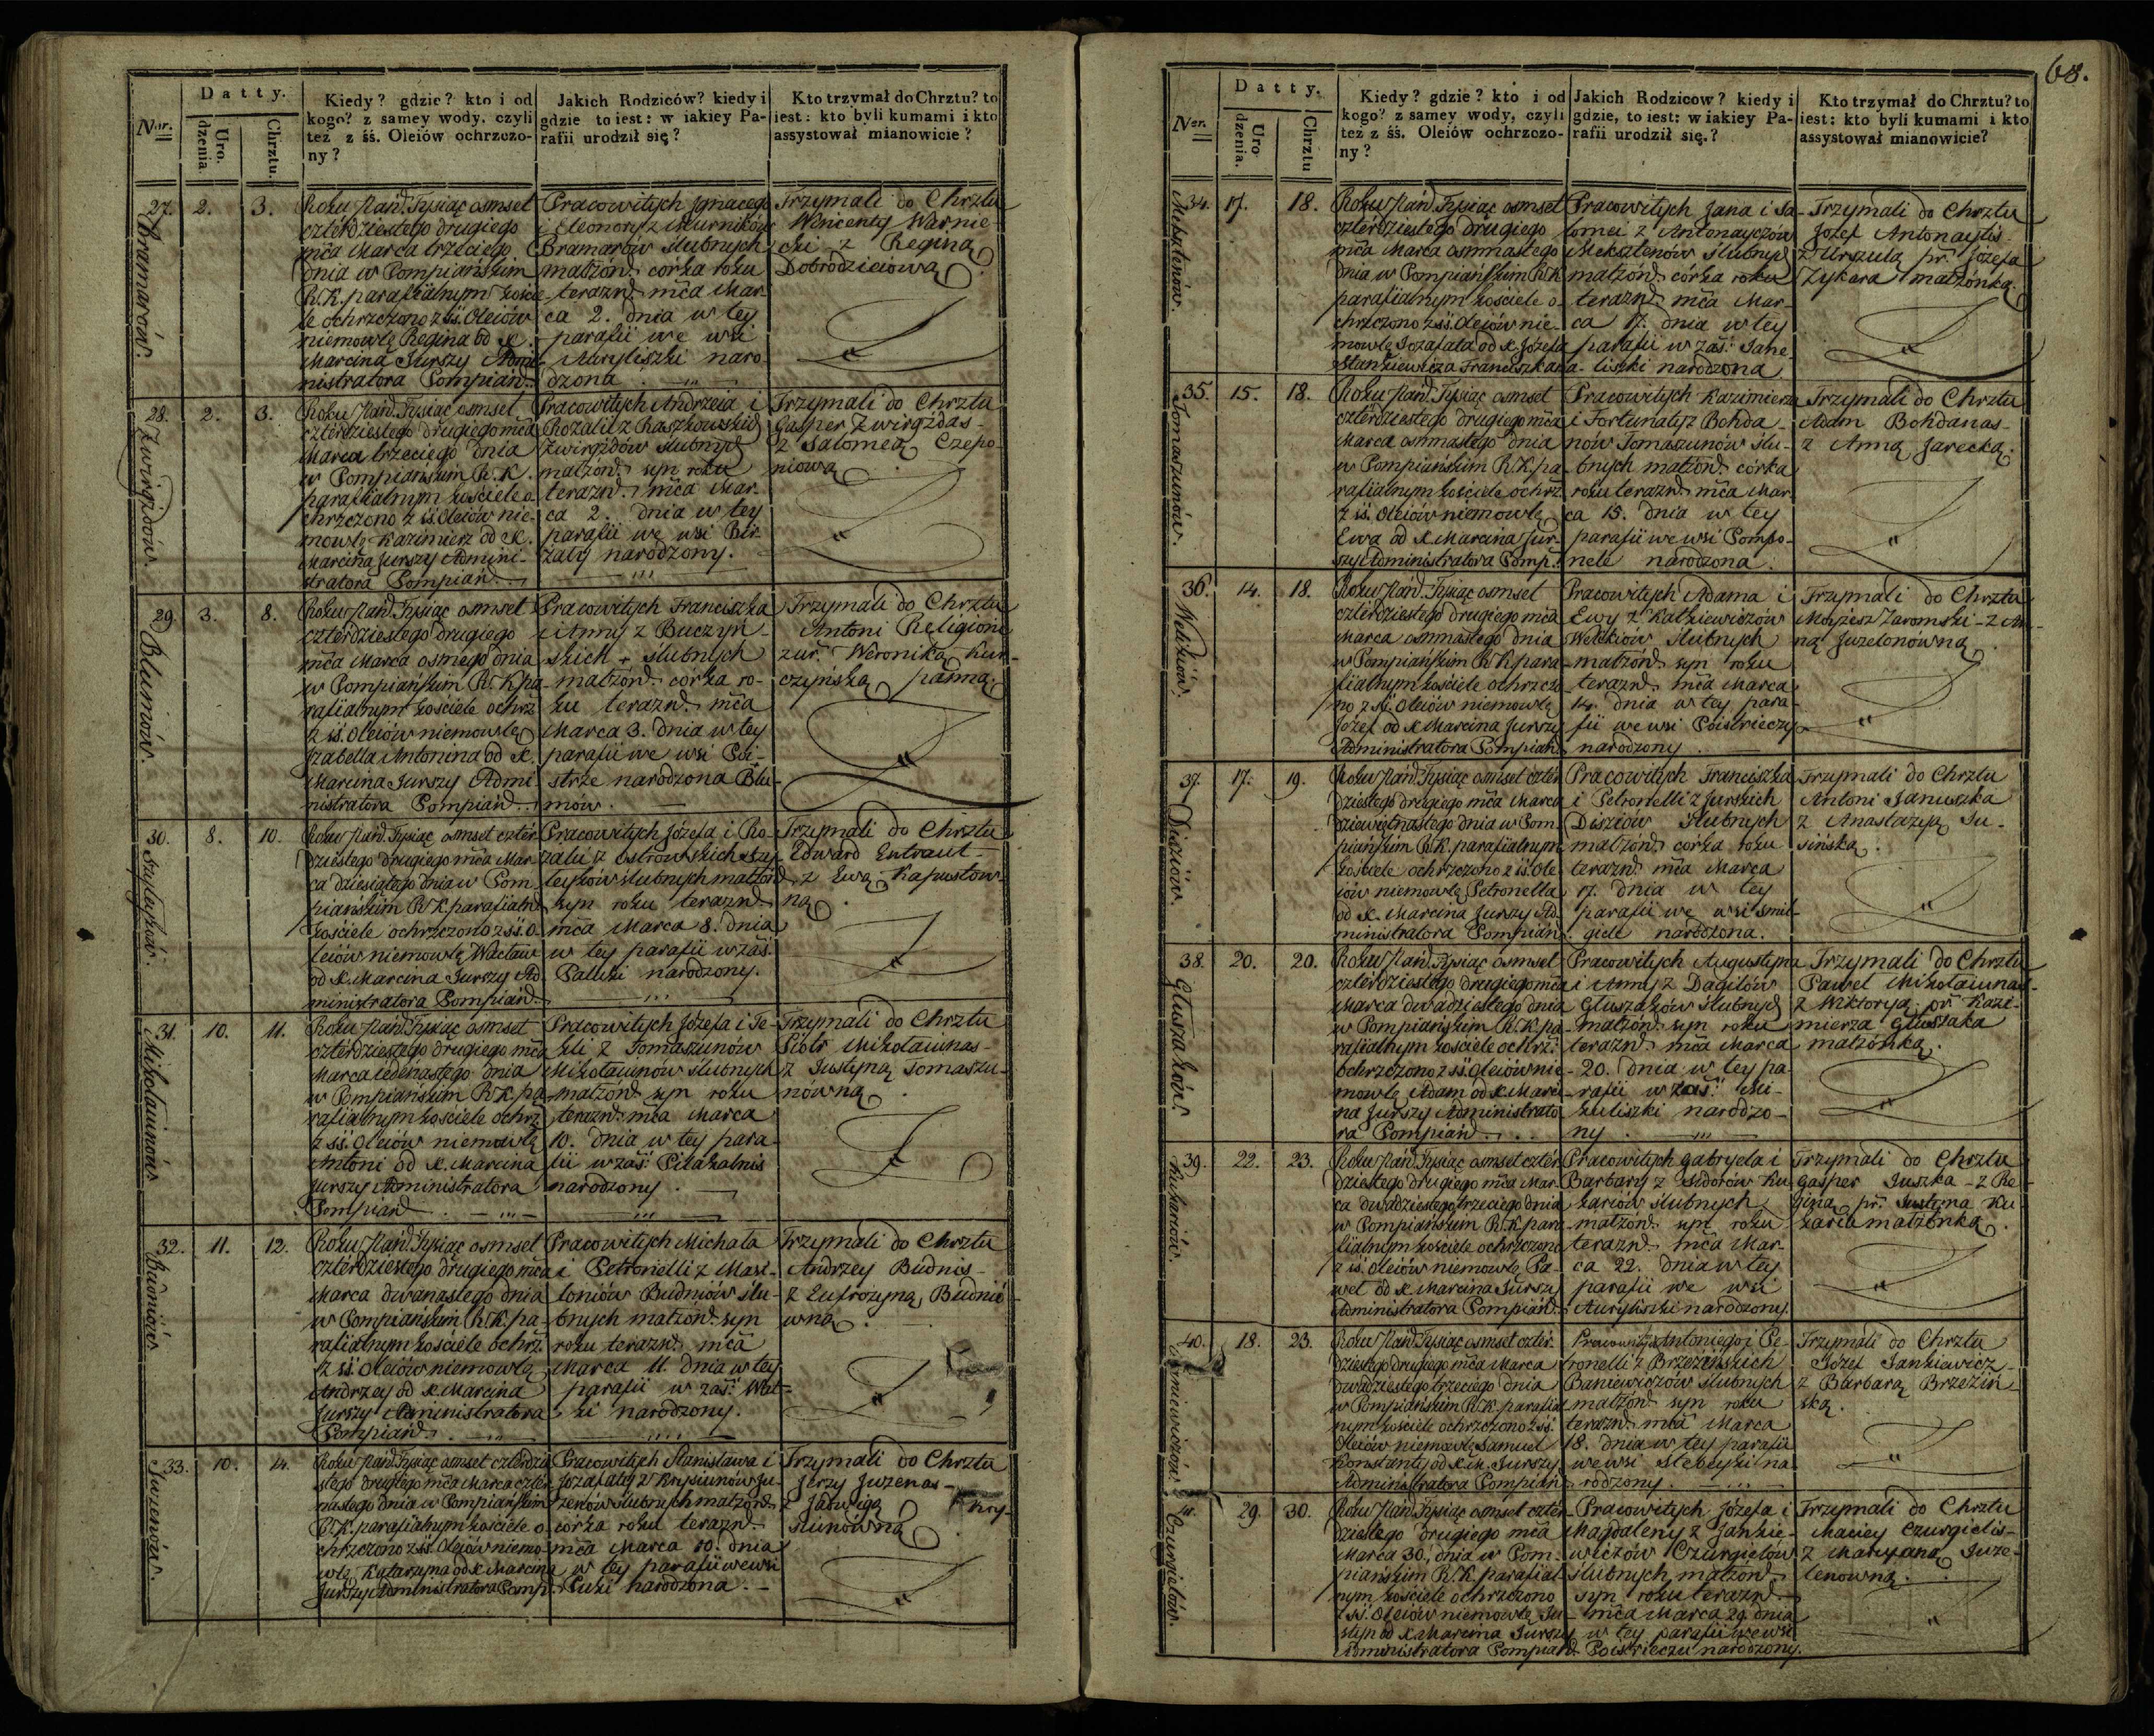 Datty.
Nar.
Uro. dzenia
Chrztu.
Kiedy? gdzie? kto i od
kogo? z samey wody, czyli
też z śś. Oleiów ochrzczo-
ny?
Jakich Rodziców? kiedy i
gdzie to iest: w iakiey Pa-
rafii urodził się?
Kto trzymał do Chrztu? to
iest: kto byli kumami i kto
assystował mianowicie?
27.
Bramarów.
2.
3.
Roku Pańd. Tysiąc osmset
cztérdziestego drugiego
mca Marca trzeciego
dnia w Pompiańskim
R. K. parafialnym koście-
le ochrzczono z śś. Oleiów
niemowlę Regina od X.
Marcina Jurszy Admi-
nistratora Pompiańd.
Pracowitych Jgnacego
i Eleonory z Murników
Bramarów ślubnych
małżońd. córka roku
teraznd. mca Mar-
ca 2. dnia w tey
parafii we wsi
Auryliszki naro-
dzona
Trzymali do Chrztu
Wincenty Warnie
cki z Reginą
Dobrodzieiową
28.
Zwirgzdów.
2.
3.
Roku Pańd. Tysiąc osmset
cztérdziestego drugiego mca
Marca trzeciego dnia
w Pompiańskim R. K.
parafialnym kościele o-
chrzczono z śś. Oleiów nie-
mowlę Kazimierz od X.
Marcina Jurszy Admini-
stratora Pompiańd.
Pracowitych Andrzeia i
Rozalii z Raszkowskid
Zwirgzdów ślubnyd
małżońd. syn roku
teraznd. mca Mar-
ca 2. dnia w tey
parafii we wsi Bir-
żały narodzony.
Trzymali do Chrztu
Gasper Zwirgżdas-
z Salomeą Czepo-
niową
29.
Blumów.
3.
8.
Roku Pańd. Tysiąc osmset
cztérdziestego drugiego
mca Marca osmego dnia
w Pompiańskim R. K. pa-
rafialnym kościele ochrz.
z śś. Oleiów niemowlę
Jzabella Antonina od X.
Marcina Jurszy Admi-
nistratora Pompiańd.
Pracowitych Franciszka
i Anny z Buczyń-
skich + ślubnych
małżońd. córka ro-
ku teraznd. mca
Marca 3. dnia w tey
parafii we wsi Poi-
strze narodzona Blu-
mów.
Trzymali do Chrztu
Antoni Religioni
zur. Weroniką Kur-
czyńską panną.
30.
8.
10.
Roku Pańd. Tysiąc osmset cztér-
dziestego drugiego mca Mar-
ca dziesiątego dnia w Pom-
piańskim R. K. parafialnd.
kościele ochrzczono z śś. O-
leiów niemowlę Wacław
od X. Marcina Jurszy Ad-
ministratora Pompiańd.
Pracowitych Józefa i Ro-
zalii z Ostrowskich Szy-
leyków ślubnych małżońd.
syn roku teraznd.
mca Marca 8. dnia
w tey parafii w zaś.
Paluki narodzony.
Trzymali do Chrztu
Edward Entraut-
z Ewą Kapustow-
ną
31.
Mikołaiunów.
10.
11.
Roku Pańd. Tysiąc osmset
cztérdziestego drugiego mca
Marca iedénastego dnia
w Pompiańskim R. K. pa-
rafialnym kościele ochrz.
z śś. Oleiów niemowlę
Antoni od X. Marcina
Jurszy Administratora
Pompiańd.
Pracowitych Józefa i Te-
kli z Tomaszunów
Mikołaiunów ślubnych
małżońd. syn roku
teraznd. mca Marca
10. dnia w tey para-
fii w zaś. Piłakalnis
narodzony.
Trzymali do Chrztu
Piotr Mikołaiunas-
z Justyną Tomaszu-
nówną
32.
Budniów.
11.
12.
Roku Pańd. Tysiąc osmset
cztérdziestego drugiego mca
Marca dwanastego dnia
w Pompiańskim R. K. pa-
rafialnym kościele ochrz.
z śś. Oleiów niemowlę
Andrzey od X. Marcina
Jurszy Administratora
Pompiańd.
Pracowitych Michała
i Petronelli z Masi-
loniów Budniów ślu-
bnych małżońd. syn
roku teraznd. mca
Marca 11. dnia w tey
parafii w zaś.
ki narodzony.
Trzymali do Chrztu
Andrzey Budnis-
z Eufrozyną Budnió-
wną
33.
Juzenów.
10.
14.
Roku Pańd. Tysiąc osmset cztérdzie-
stego drugiego mca Marca czter-
nastego dnia w Pompiańskim
R. K. parafialnym kościele o-
chrzczono z śś. Oleiów niemo-
wlę Katarzyna od X. Marcina
Jurszy Administratora Pomp.
Pracowitych Stanisława i
Jozafaty z Krysiunów Ju-
zenów ślubnych małżońd.
córka roku teraznd.
mca Marca 10. dnia
w tey parafii we wsi
narodzona.
Trzymali do Chrztu
Jerzy Juzenas-
z Jadwigą Kry-
siunówną
68.
Datty.
Ner.
Uro dzenia.
Chrztu
Kiedy? gdzie? kto i od
kogo? z samey wody, czyli
też z śś. Oleiów ochrzczo-
ny?
Jakich Rodzicow? kiedy i
gdzie, to iest: w iakiey Pa-
rafii urodził się.?
Kto trzymał do Chrztu? to
iest: kto byli kumami i kto
assystował mianowicie?
34.
Meksztenów.
17.
18.
Roku Pańd. Tysiąc osmset
cztérdziestego drugiego
mca Marca osmnastego
dnia w Pompiańskim R. K.
parafialnym kościele o-
chrzczono z śś. Oleiów nie-
mowlę Jozafata od X. Józefa
Stankiewicza Franciszkana
Pracowitych Jana i Sa-
lomei z Antonayczów
Meksztenów ślubnyd
małżońd. córka roku
teraznd. mca Mar-
ca 17. dnia w tey
parafii w zaś. Jane-
liszki narodzona.
Trzymali do Chrztu
Józef Antonaytis-
z Urszulą pr. Józefa
Zykara małżonką.
35.
Tomaszunów.
15.
18.
Roku Pańd. Tysiąc osmset
cztérdziestego drugiego mca
Marca osmnastego dnia
w Pompiańskim R. K. pa-
rafialnym kościele ochrz.
z śś. Oleiów niemowlę
Ewa od X. Marcina Jur-
szy Administratora Pomp.
Pracowitych Kazimierza
i Fortunaty z Bohda-
nów Tomaszunów ślu-
bnych małżońd. córka
roku teraznd. mca Mar-
ca 15. dnia w tey
parafii we wsi Pompo-
nele narodzona.
Trzymali do Chrztu
Adam Bohdanas-
z Anną Jarecką.
36.
14.
18.
Roku Pańd. Tysiąc osmset
cztérdziestego drugiego mca
Marca osmnastego dnia
w Pompiańskim R. K. para-
fialnym kościele ochrzczo-
no z śś. Oleiów niemowlę
Józef od X. Marcina Jurszy
Administratora Pompiańd.
Pracowitych Adama i
Ewy z Katkiewiczów
ślubnych
małżońd. syn roku
teraznd. mca Marca
14. dnia w tey para-
fii we wsi Poistrieczy
narodzony.
Trzymali do Chrztu
Moyżesz Zaromski - z An-
ną Juzefonówną
37.
Disziów.
17.
19.
Roku Pańd. Tysiąc osmset cztér-
dziestego drugiego mca Marca
dziewiętnastego dnia w Pom-
piańskim R. K. parafialnym
kościele ochrzczono z śś. Ole-
iów niemowlę Petronella
od X. Marcina Jurszy Ad-
ministratora Pompiańd.
Pracowitych Franciszka
i Petronelli z Jurskich
Disziów ślubnych
małżońd. córka roku
teraznd. mca Marca
17. dnia w tey
parafii we wsi Smil-
giele narodzona.
Trzymali do Chrztu
Antoni Januszka
z Anastazyą Ju-
sińską.
38.
Głuszaków.
20.
20.
Roku Pańd. Tysiąc osmset
cztérdziestego drugiego mca
Marca dwudziestego dnia
w Pompiańskim R. K. pa-
rafialnym kościele ochrz.
ochrzczono z śś. Oleiów nie-
mowlę Adam od X. Marci-
na Jurszy Administrato-
ra Pompiańd.
Pracowitych Augustyna
i Anny z Dagilów
Głuszaków ślubnyd
małżońd. syn roku
teraznd. mca Marca
20. dnia w tey pa-
rafii w zaś. Mi-
kuliszki narodzo-
ny.
Trzymali do Chrztu
Paweł Mikołaiunas-
z Wiktoryą pr. Kazi-
mierza Głuszaka
małżonką.
39.
Kukariów.
22.
23.
Roku Pańd. Tysiąc osmset cztér-
dziestego drugiego mca Mar-
ca dwudziestego trzeciego dnia
w Pompiańskim R. K. para-
fialnym kościele ochrzczono
z śś. Oleiów niemowlę Pa-
weł od X. Marcina Jurszy
Administratora Pompiańd.
Pracowitych Gabryela i
Barbary z Sidorów Ku-
kariów ślubnych
małżońd. syn roku
teraznd. mca Mar-
ca 22. dnia w tey
parafii we wsi
Auryliszki narodzony.
Trzymali do Chrztu
Gasper Juszka - z Re-
giną pr. Justyna Ku-
karia małżonką.
40.
18.
23.
Roku Pańd. Tysiąc osmset cztér-
dziestego drugiego mca Marca
dwudziestego trzeciego dnia
w Pompiańskim R. K. parafial-
nym kościele ochrzczono z śś.
Oleiów niemowlę Samuel
Konstanty od X. M. Jurszy
Administratora Pompiańd.
Pracowitych Antoniego i Pe-
tronelli z Brzezińskich
Baniewiczów ślubnych
małżońd. syn roku
teraznd. mca Marca
18. dnia w tey parafii
we wsi na-
rodzony.
Trzymali do Chrztu
Józef Jankiewicz-
z Barbarą Brzeziń-
ską.
41.
Czurgielów.
29.
30.
Roku Pańd. Tysiąc osmset cztér-
dziestego drugiego mca
Marca 30. dnia w Pom-
piańskim R. K. parafial-
nym kościele ochrzczono
z śś. Oleiów niemowlę Ju-
styn od X. Marcina Jurszy
Administratora Pompiańd.
Pracowitych Józefa i
Magdaleny z Jankie-
wiczów Czurgielów
ślubnych małżońd.
syn roku teraznd.
mca Marca 29. dnia
w tey parafii we wsi
Poistrieczu narodzony.
Trzymali do Chrztu
Maciey Czurgielis-
z Maryanną Juze-
lenowną.